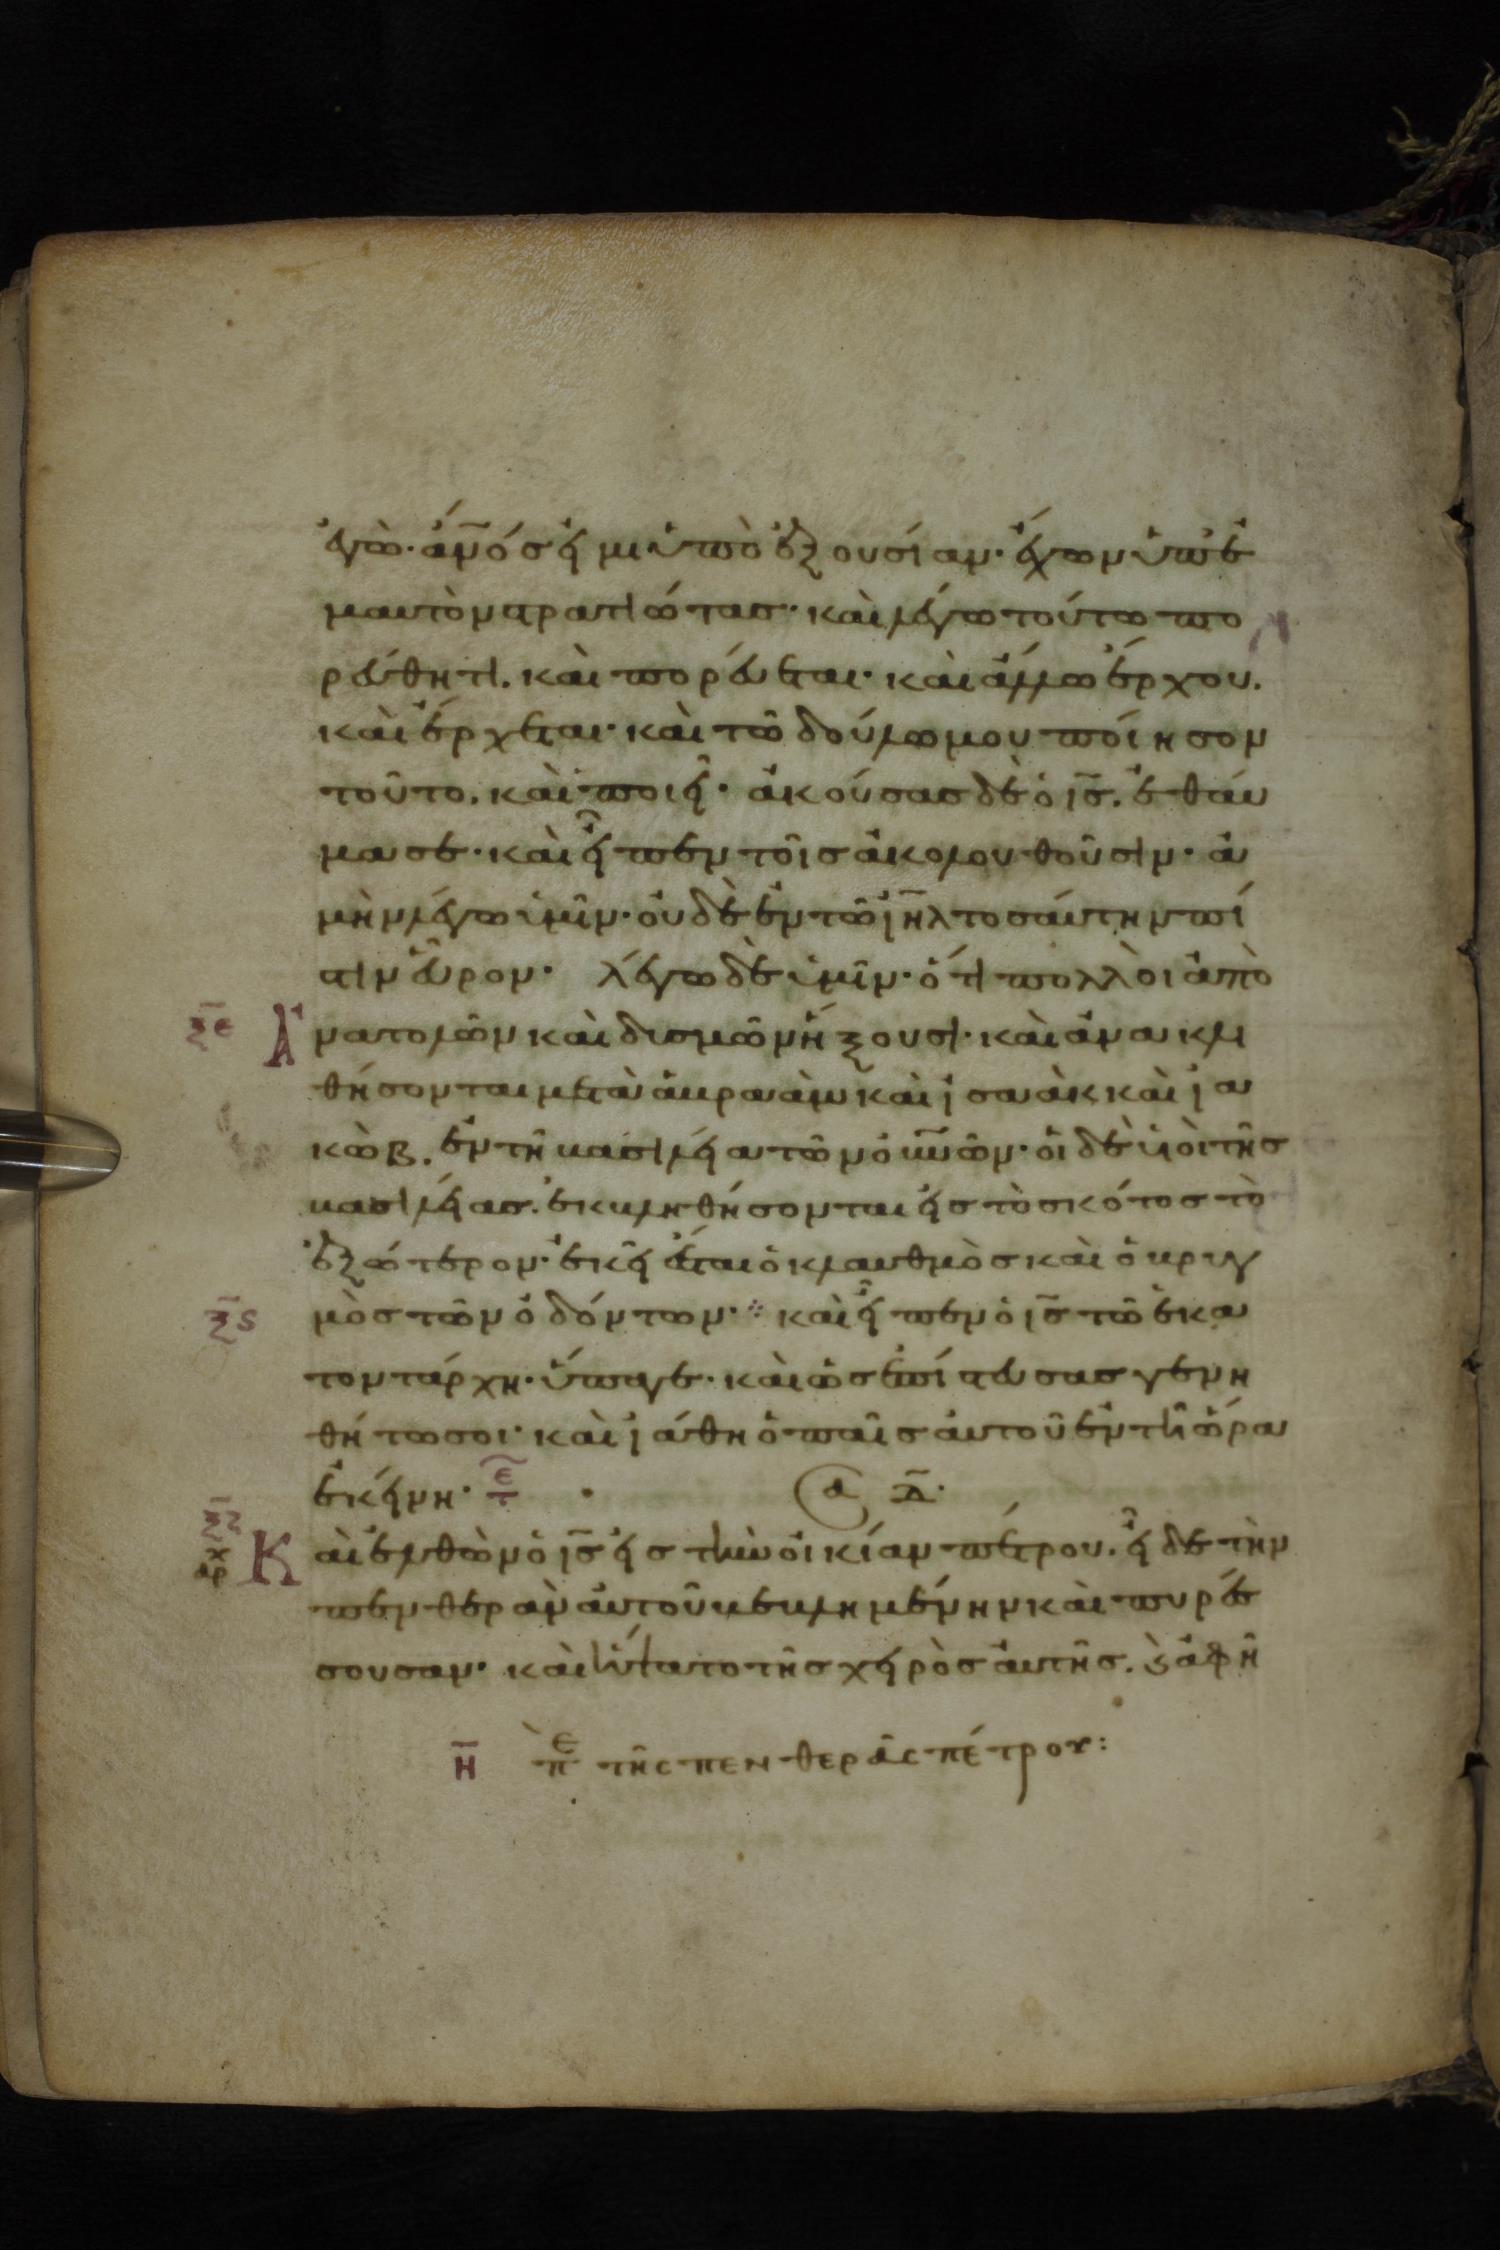 ἐγὼ· ἀν̅ό́ς εἰμι ὑπὸ ἐξουσίαν· ἔχων ὑπ' ἐ
μαυτὸν στρατιώτας· καὶ λέγω τούτω πο
ρεύθητι. καὶ πορεύεται· καὶ ἄλλω ἔρχου.
καὶ ἔρχεται· καὶ τῶ δούλω μου ποίησον
τοῦτο. καὶ ποιεῖ· ἀκούσας δὲ ὁ ι̅ς̅. ἐθαύ
μασε· καὶ εἶπεν τοῖς ἀκολουθοῦσιν· ἀ
μὴν λέγω ὑμῖν· οὐδὲ ἐν τῶ ι̅η̅λ̅ τοσαύτην πί
στιν εὗρον· λέγω δὲ ὑμῖν· ὅτι πολλοὶ ἀπὸ
ξ̅ε̅ Ἀ νατολῶν καὶ δισμῶν ἥξουσι· καὶ ἀνακλι
θήσονται μετὰ ἀβραὰμ καὶ ἰσαὰκ καὶ ἰα
κὼβ. ἐν τῆ βασιλεία τῶν ο̅υ̅ν̅ῶν· οἱ δὲ υἱοὶ τῆς
βασιλείας. ἐκβληθήσονται εἰς τὸ σκότος τὸ
ἐξώτερον· ἐκεῖ ἔσται ὁ κλαυθμὸς καὶ ὁ βρυγ
ξ̅ϛ̅ μὸς τῶν ὀδόντων· ⁘ καὶ εἶπεν ὁ ι̅ς̅ τῶ ἑκα
τοντάρχη· ὕπαγε· καὶ ὡς ἐπίστευσας γενη
θήτω σοι· καὶ ἰάθη ὁ παῖς αὐτοῦ ἐν τῆ ὥρα
ἐκείνη· τε
ξ̅ζ̅ αρχ Κ αὶ ἐλθὼν ὁ ι̅ς̅ εἰς τὴν οἰκίαν πέτρου. εἶδε τὴν
πενθερὰν αὐτοῦ βεβλημένην καὶ πυρέσ
σουσαν· καὶ ἥψατο τῆς χειρὸς αὐτῆς. ϗ ἀφῆ
η̅ πε τῆς πενθερᾶς πέτρου: